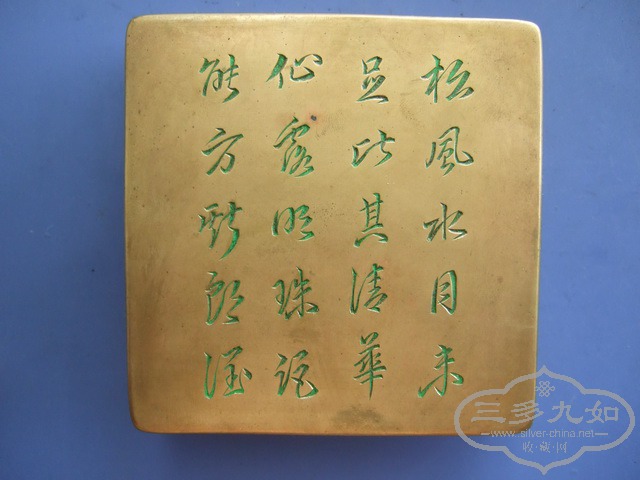 松風水月未
足比其清華
仙露明珠詎
能方斯朗潤
三多九如
www.silver-china.net
收·藏·网